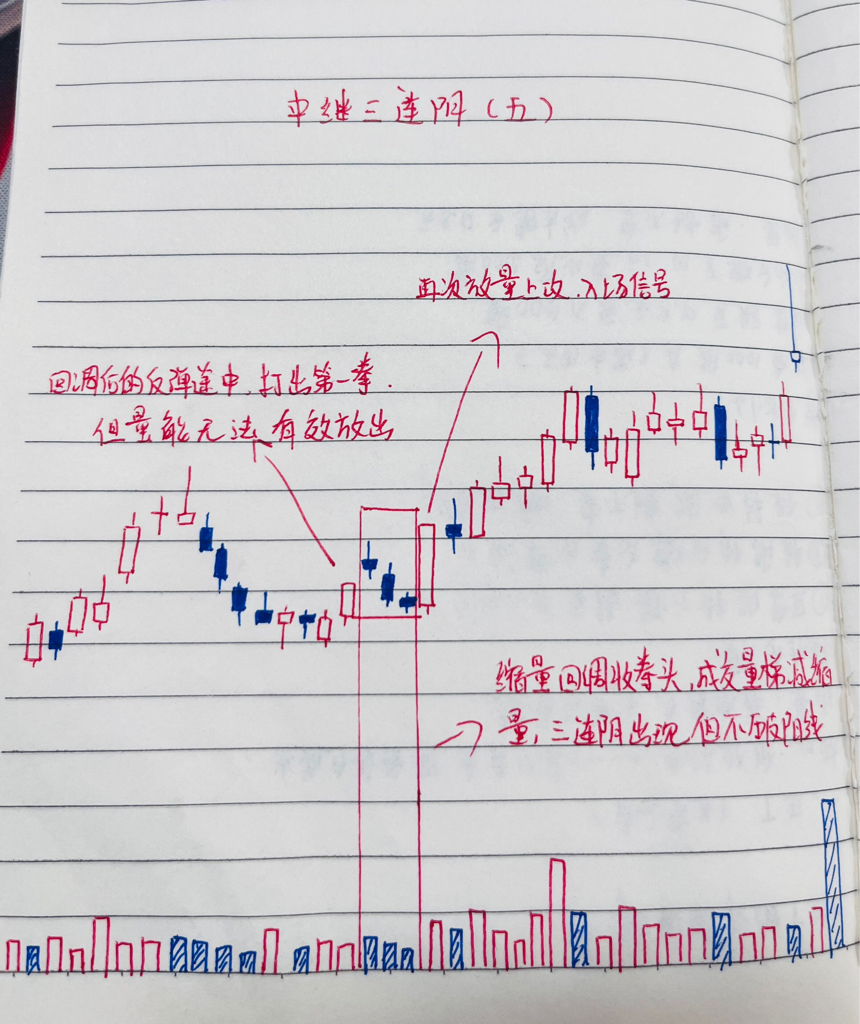 中继三连阴（五）
再次放量上攻，入场信号
回调后的反弹途中，打出第一拳．
但量能无法有效放出
缩量回调收拳头，成交量梯减缩
量，三连阴出现但不破阳线